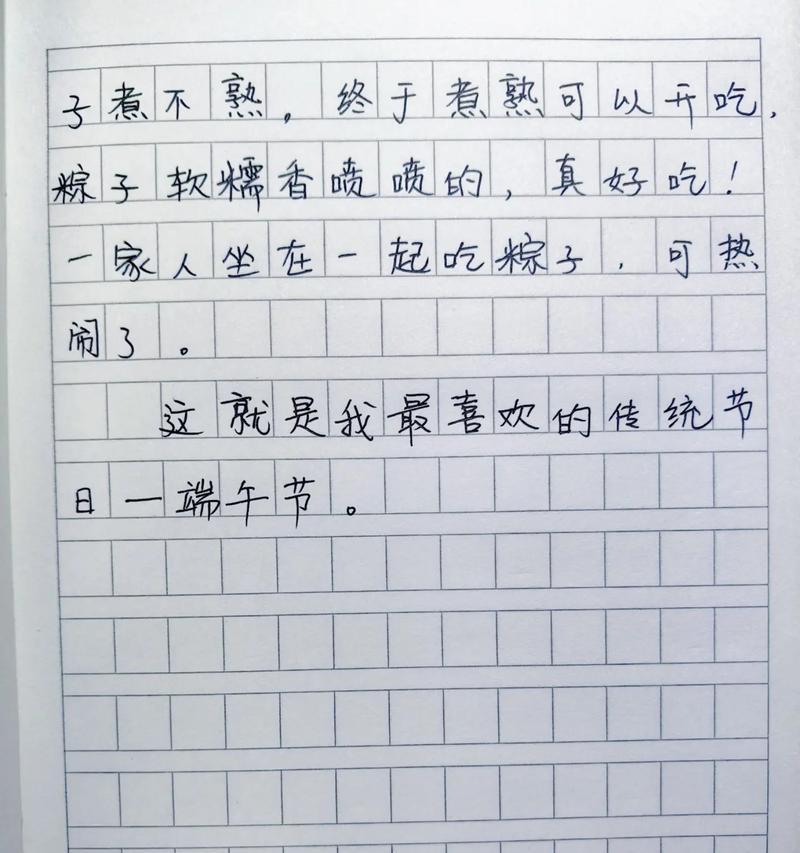 子煮不熟。终于煮熟可以开吃,
粽子软糯香喷喷的,真好吃!
一家人坐在一起吃粽子,可热
闹了。
这就是我最喜欢的传统节
日一端午节。